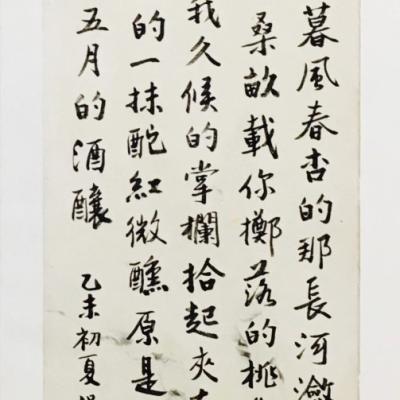 暮風春杏的那長河瀲
桑畝載你擲落的桃
我久候的掌欄拾起夾
的一抹酡紅微醺原是
五月的酒釀
乙未初夏